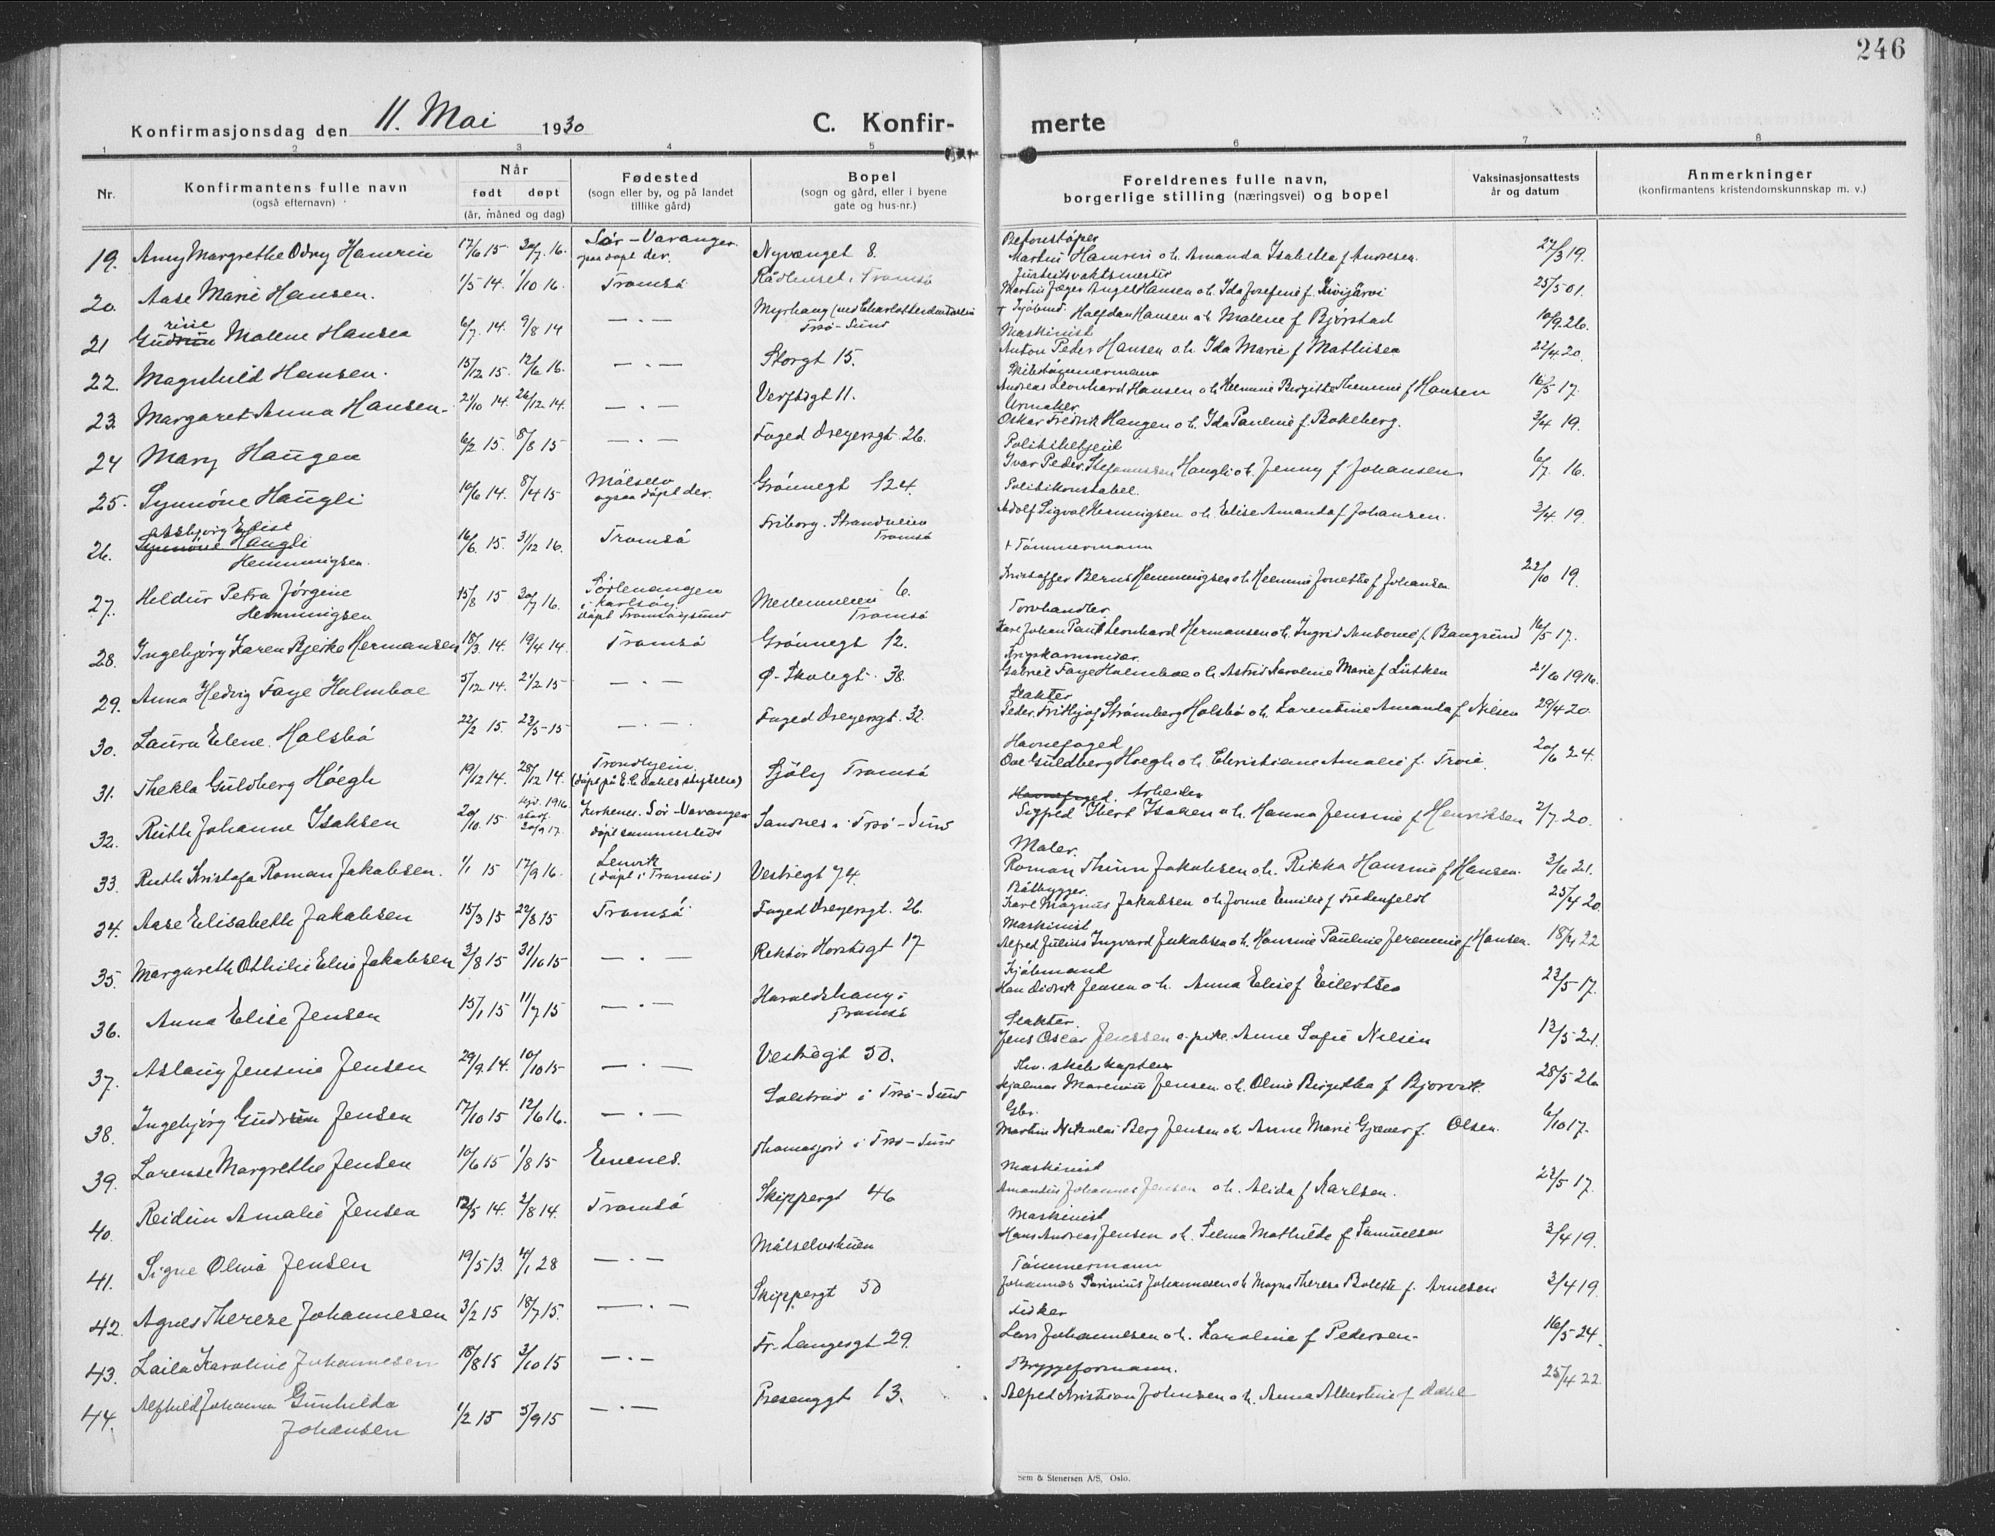 246
Konfirmasjonsdag den 11. Mai 1930
C. Konfirmerte
1 2 3 4 5 6 7 8
Nr.
Konfirmantens fulle navn
(også efternavn)
Når
født døpt
(år, måned og dag)
Fødested
(sogn eller by, og på landet
tillike gård)
Bopel
(sogn og gård, eller i byene
gate og hus-nr.)
Foreldrenes fulle navn,
borgerlige stilling (næringsvei) og bopel
Vaksinasjonsattests
år og datum
Anmerkninger
(konfirmantens kristendomskunnskap m. v.)
19. Amy Margrethe Odny Hamrin 17/6 15. 30/7. 16. Sør-Varanger. ogsaa døpt der. Nyvænget 8. Betonstøper Martin Hamrin o.h. Amanda Isabella f. Andresen 27/3 19.
20. Aase Marie Hansen. 1/5 14. 1/10 16. Tromsø Rådhuset i Tromsø Justitsvaktmester Martin Jæger Angel Hansen o.h. Ida Josefine f. Kivijärvi 25/5 01.
21 Gudrine Malene Hansen 6/7. 14. 9/8 14 — . — Myrhaug Tsø-Sund + Sjøbmd. Halfdan Hansen o.h. Malene f Bjørstad 10/9. 26.
22. Magnhild Hansen. 15/12 15. 12/6 16. — . — Storgt 15. Maskinist Anton Peder Hansen o.h. Ida Marie f Mathisen 22/4 20.
23. Margaret Anna Hansen. 21/10 14. 26/12 14. — . — Verftsgt 11. Skibstømmermann Andreas Leonhard Hansen o.h. Hemmine f Hansen 16/5 17.
24 Mary Haugen 6/2 15. 8/8 15 — . — Foged Dreyersgt. 26. Urmaker Oskar Fredrik Haugen o.h. Ida Pauline f. Bakeberg. 3/4 19.
25. Synnøve Haugli 10/6 14. 8/4 15 Målselv ogsaa døpt der. Grønnegt 124. Politibetjent Ivar Peder Stefanussen Haugli o.h. Jenny f Johansen 6/7. 16.
26. Asbjørg Elise Hemmingsen. 16/6. 15. 31/12 16. Tromsø Friborg. Strandveien Tromsø Politikonstabel. Adolf Sigval Hemmingsen o.h. Elise Amanda f Johansen. 3/4. 19.
27. Heldur Petra Jørgine Hemmingsen 15/8 15 30/7 16. Sørlenangen i Karlsøy. døpt Tromsøysund 6. Tromsø + Tømmermann Kristoffer Hemmingsen o.h. Hemmine Jonette f Johansen 22/10 19.
28. Ingebjørg Karen Bjerke Hermansen 18/3 14. 19/4 14. Tromsø Grønnegt 12. Torvhandler Karl Johan Paul Leonhard Hermansen o.h. Ingrid Antonie f. Bangsund 16/5 17.
29. Anna Hedvig Faye Holmboe 5/12 14. 21/2 15 — . — Ø. Skolegt. 38. Krigskommisær Gabriel Faye Holmboe o.h. Astrid Karoline Marie f Lütken 21/6 1916.
30. Laura Elene. Halsbø 22/2 15. 23/5-15 — . — Foged Dreyersgt. 32. Slakter Peder. Fritkjof Strømberg Halsbø o.h. Larentine Amanda f Nilsen 29/4 20.
31. Thekla Guldberg Høegh 19/12 14. 28/12 14. Trondhjem. (døpt på E.C. Dahls stiftelse) Sjøly Tromsø Havnefoged Ove Guldberg Høegh o.h. Christiane Amalie f. Troie. 20/6 24.
32. Ruth Johanne Isaksen 20/10 15 1916 20/9 17. Kirkenes. Sør-Varanger døpt sammesteds Sandnes i Tsø-Sund Havnefoged. Arbeider Sigfred Isaksen o.h. Hanna Jensine f Henriksen 2/7. 20.
33. Ruth Kristofa Roman Jakobsen. 1/1 15 17/9 16. Lenvik (døpt i Tromsø) Vestregt 74. Maler. Roman Thinn Jakobsen o.h. Rikka Hansine f Hansen. 3/6 21.
34. Aase Elisabeth Jakobsen 15/3 15 22/8 15 Tromsø Foged Dreyersgt. 26. Båtbygger Karl Magnus Jakobsen o.h. Jonne Emilie f Fredenfeldt 25/4 20.
35. Margareth Othilie Elise Jakobsen 3/8 15 31/10 15 — . — Rektor Horstsgt 17 Maskinist Alfred Julius Ingvard Jakobsen o.h. Hansine Pauline f Hansen. 18/4 22
36. Anna Elise Jensen 15/1 15 11/7 15 — . — Haraldshaug i Tromsø Kjøbmand Hans Didrik Jensen o.h. Anna Elise f Eilertsen 23/5 17.
37. Aslaug Jensine Jensen 29/9. 14. 10/10 15 — . — Vestregt 50. Slakter. Jens Oscar Jenssen o. Anne Sofie Nilsen 12/5 21.
38. Ingebjørg Gudrun Jensen 17/10 15 12/6 16. — . — Solstrand i Tsø-Sund Hjalmar Marenius Jensen o.h. Oline Birgitha f Bjorvik. 28/5 26
39. Lorense Margrethe Jensen 10/6 15 1/8 15 Evenes. Thomasjord i Tsø-Sund Gbr. Martin Nikolai Berg Jensen o.h. Anne Marie Gjæver f. Olsen. 6/10 17.
40. Reidun Amalie Jensen 12/5 14. 2/8 14. Tromsø Skippergt 46 Maskinist Amandus Johannes Jensen o.h. Alida f Karlsen. 23/5 17.
41. Signe Olivia Jensen 19/5 13. 4/1 28 — . — Maskinist Hans Andreas Jensen o.h. Selma Mathilde f Samuelsen 3/4 19.
42. Agnes Therese Johannesen 3/2 15 18/7 15. — . — Skippergt 50 Tømmermann Johannes Johannesen o.h. Magna Therese Bolette f. Arnesen 3/4 19.
43. Laila Karoline Johannesen 18/8 15 3/10 15 — . — Fr. Langesgt 29. Fisker Lars Johannesen o.h. Karoline f Pedersen. 16/5 24.
44. Alfhild Johanna Gunhilda Johansen 1/2 15 5/9 15 — . — 13. Bryggeformann. Alfred Kristian Johnsen o.h. Anna Albertine f Dahl 25/4 22.
Sem & Stenersen A/S, Oslo.